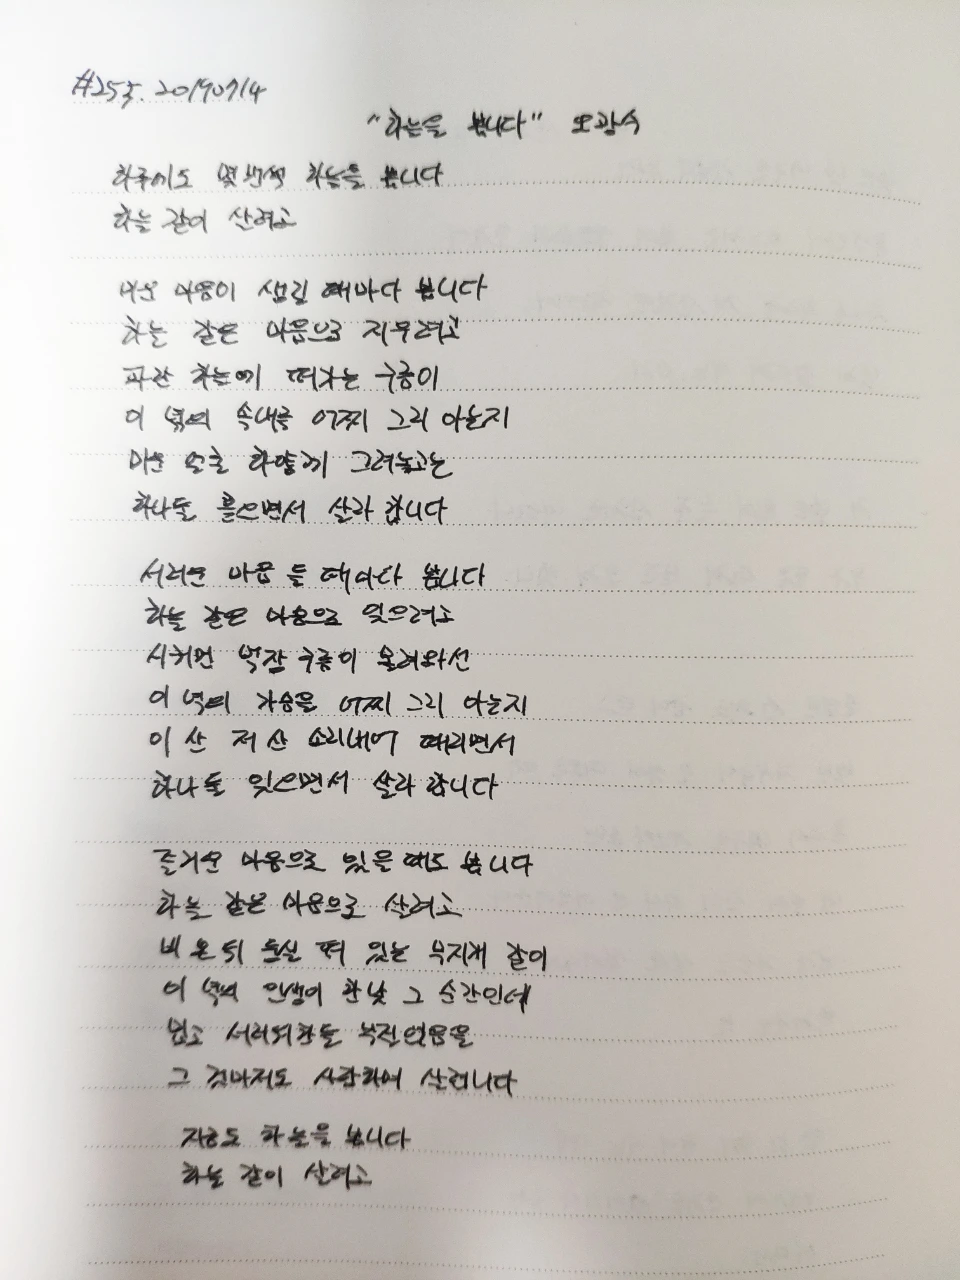 #25주. 20190714
"하늘을 봅니다" 오광수
하루에도 몇 번씩 하늘을 봅니다
하늘 같이 살려고
미운 마음이 생길 때마다 봅니다
하늘 같은 마음으로 지우려고
파란 하늘에 떠가는 구름이
이 녘의 속내를 어찌 그리 아는지
미운 얼굴 하얗게 그려놓고는
하나둘 흩으면서 살라 합니다
서러운 마음 들 때마다 봅니다
하늘 같은 마음으로 잊으려고
시커먼 먹장 구름이 몰려와선
이 녘의 가슴을 어찌 그리 아는지
이 산 저 산 소리내어 때리면서
하나둘 잊으면서 살라 합니다
즐거운 마음으로 있을 때도 봅니다
하늘 같은 마음으로 살려고
비 온 뒤 둥실 떠 있는 무지개 같이
이 녘의 인생이 한낮 그 순간인데
밉고 서러워한들 부질없음을
그 것마저도 사랑하며 살랍니다
지금도 하늘을 봅니다
하늘 같이 살려고